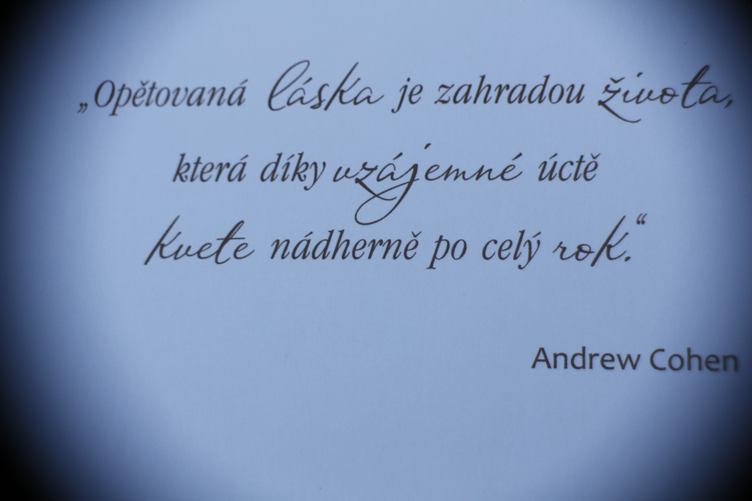 „Opětovaná láska je zahradou života,
která díky vzájemné úctě
kvete nádherně po celý rok.“
Andrew Cohen